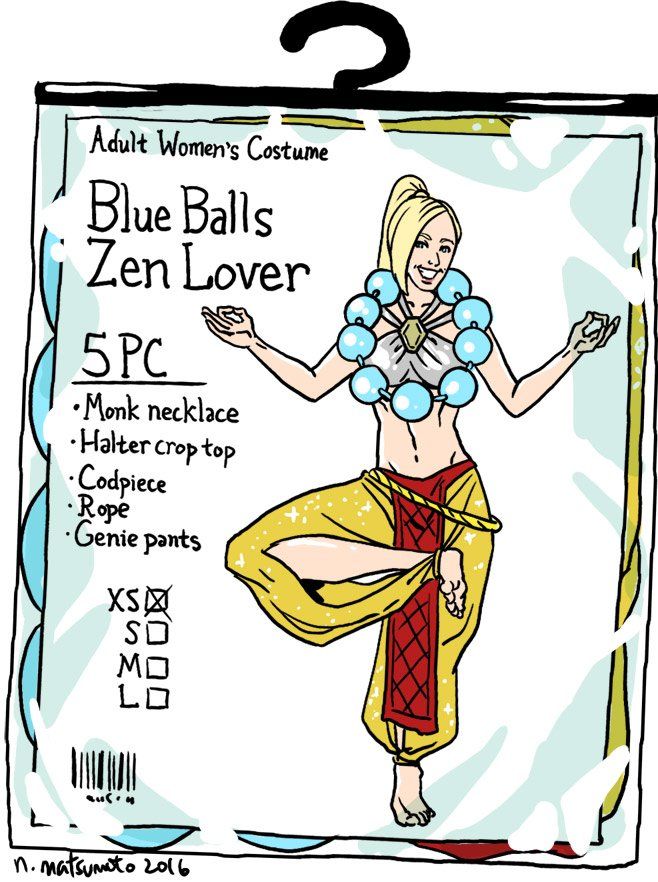 Adult Women's Costume
Blue Balls
Zen Lover
5PC
·Monk necklace
·Halter crop top
·Codpiece
·Rope
·Genie pants
XS
S
M
L
n. matsumoto 2016